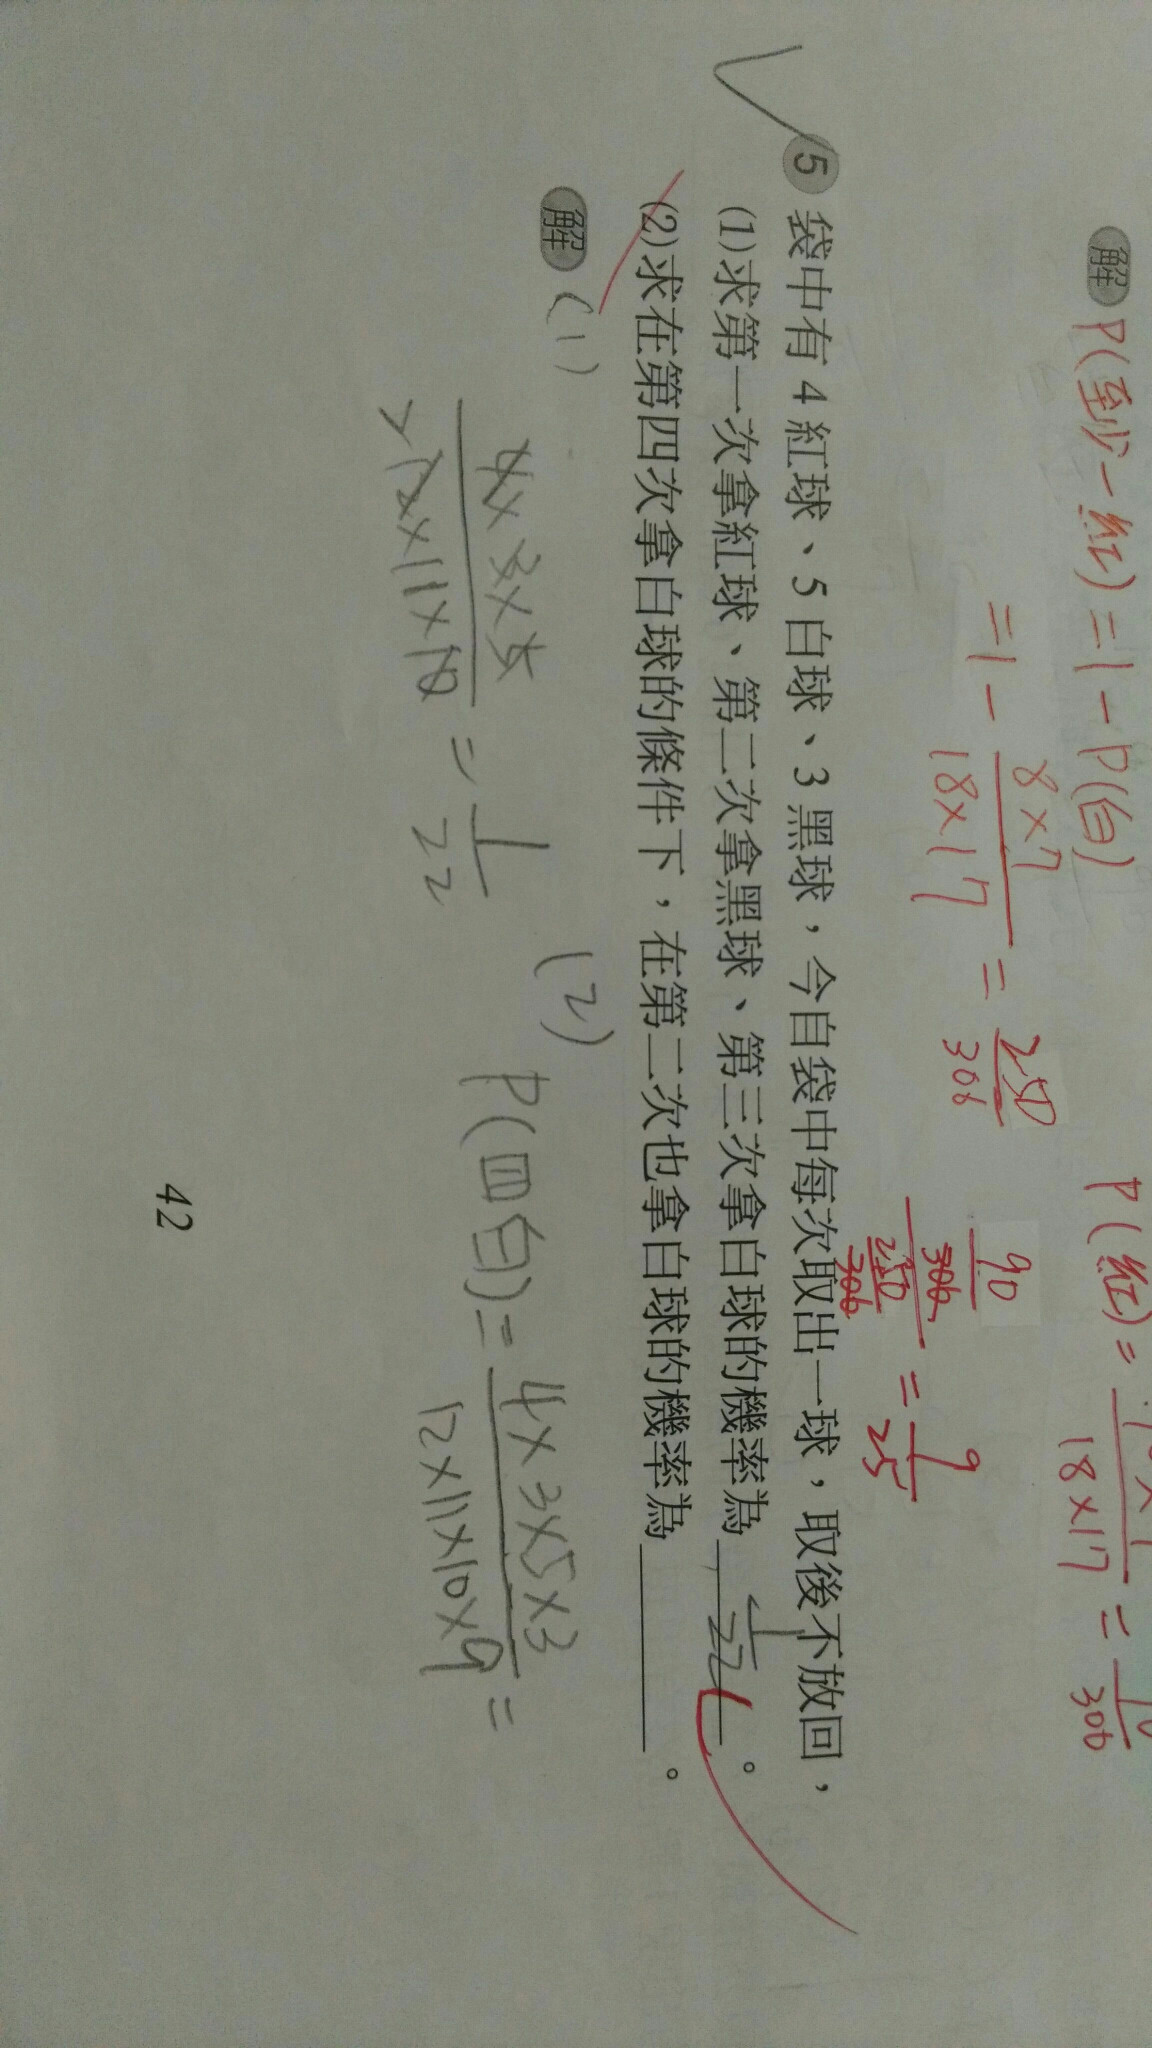 解 P(至少一紅)=1-P(白)
=1- 8×7/18×17 = 250/306
P(紅)=
18×17 =
306
90/306 / 250/306 = 9/25
5 袋中有 4 紅球、5 白球、3 黑球，今自袋中每次取出一球，取後不放回，
(1)求第一次拿紅球、第二次拿黑球、第三次拿白球的機率為 1/22 。
(2)求在第四次拿白球的條件下，在第二次也拿白球的機率為 。
解 (1) 4×3×5/12×11×10 = 1/22
(2) P(四白)= 4×3×5×3/12×11×10×9 =
42